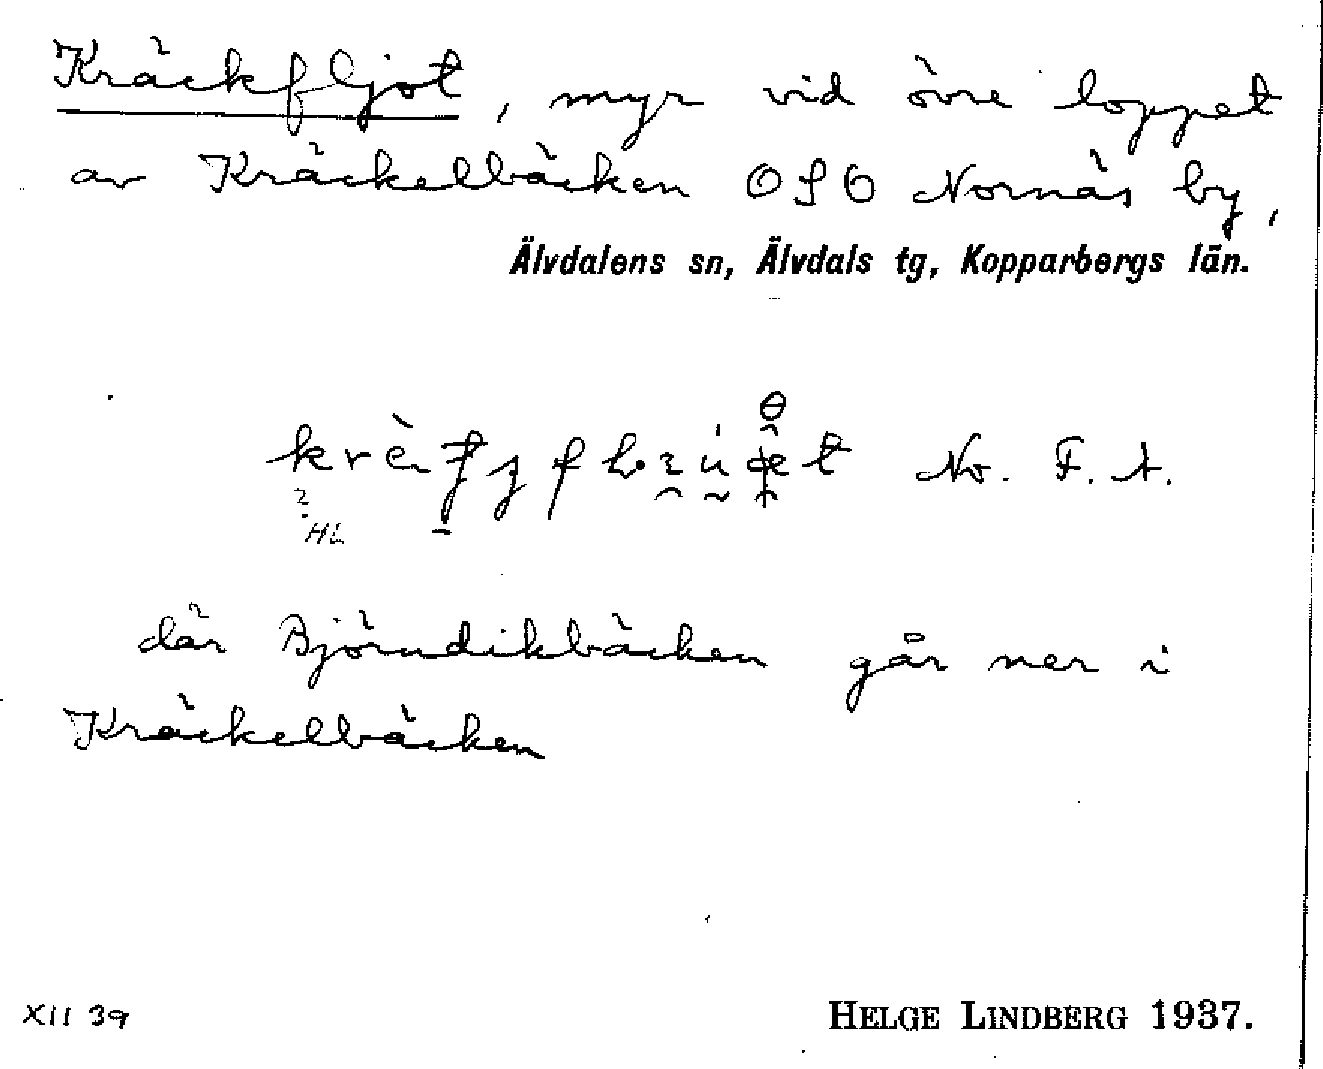 Kräckfljot, myr vid övre loppet
av Kräckelbäcken OSO Nornäs by,
Älvdalens sn, Älvdals tg, Kopparbergs län.
No. F. A.
?
HL
där Björndikbäcken går ner i
Kräckelbäcken
XII 39
HELGE LINDBERG 1937.